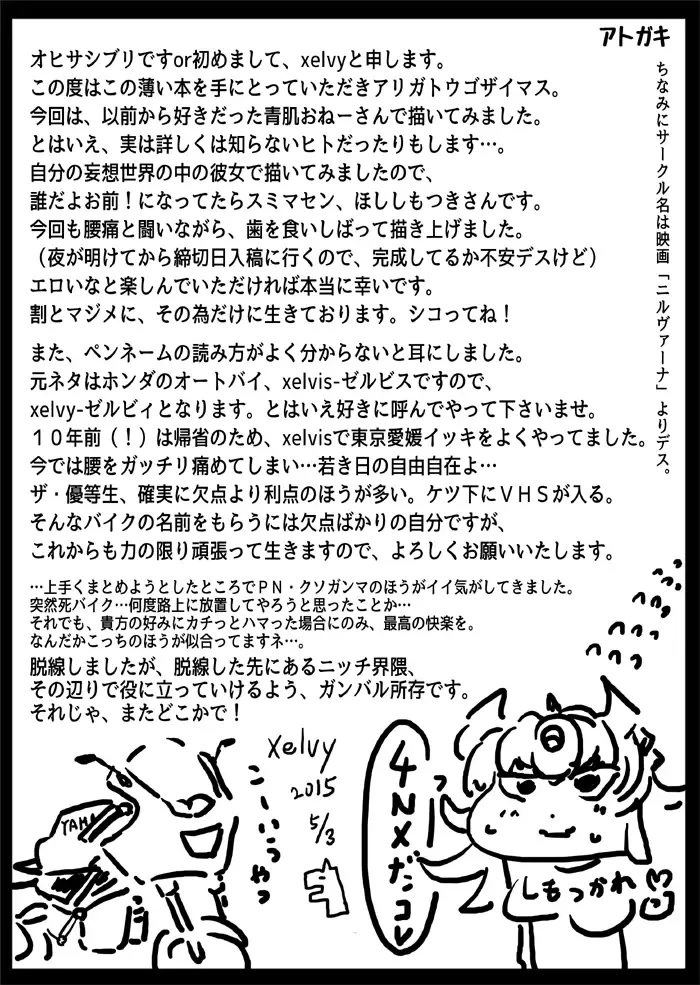 アトガキ
オヒサシブリですor初めまして、xelvyと申します。
この度はこの薄い本を手にとっていただきアリガトウゴザイマス。
今回は、以前から好きだった青肌おねーさんで描いてみました。
とはいえ、実は詳しくは知らないヒトだったりもします…。
自分の妄想世界の中の彼女で描いてみましたので、
誰だよお前！になってたらスミマセン、ほししもつきさんです。
今回も腰痛と闘いながら、歯を食いしばって描き上げました。
（夜が明けてから締切日入稿に行くので、完成してるか不安デスけど）
エロいなと楽しんでいただければ本当に幸いです。
割とマジメに、その為だけに生きております。シコってね！
また、ペンネームの読み方がよく分からないと耳にしました。
元ネタはホンダのオートバイ、xelvis-ゼルビスですので、
xelvy-ゼルビィとなります。とはいえ好きに呼んでやって下さいませ。
１０年前（！）は帰省のため、xelvisで東京愛媛イッキをよくやってました。
今では腰をガッチリ痛めてしまい…若き日の自由自在よ…
ザ・優等生、確実に欠点より利点のほうが多い。ケツ下にＶＨＳが入る。
そんなバイクの名前をもらうには欠点ばかりの自分ですが、
これからも力の限り頑張って生きますので、よろしくお願いいたします。
…上手くまとめようとしたところでＰＮ・クソガンマのほうがイイ気がしてきました。
突然死バイク…何度路上に放置してやろうと思ったことか…
それでも、貴方の好みにカチっとハマった場合にのみ、最高の快楽を。
なんだかこっちのほうが似合ってますネ…。
脱線しましたが、脱線した先にあるニッチ界隈、
その辺りで役に立っていけるよう、ガンバル所存です。
それじゃ、またどこかで！
ちなみにサークル名は映画「ニルヴァーナ」よりデス。
xelvy
2015
5/3
YAMA
こーいつやつ
4NXだコレ
しもつかれ